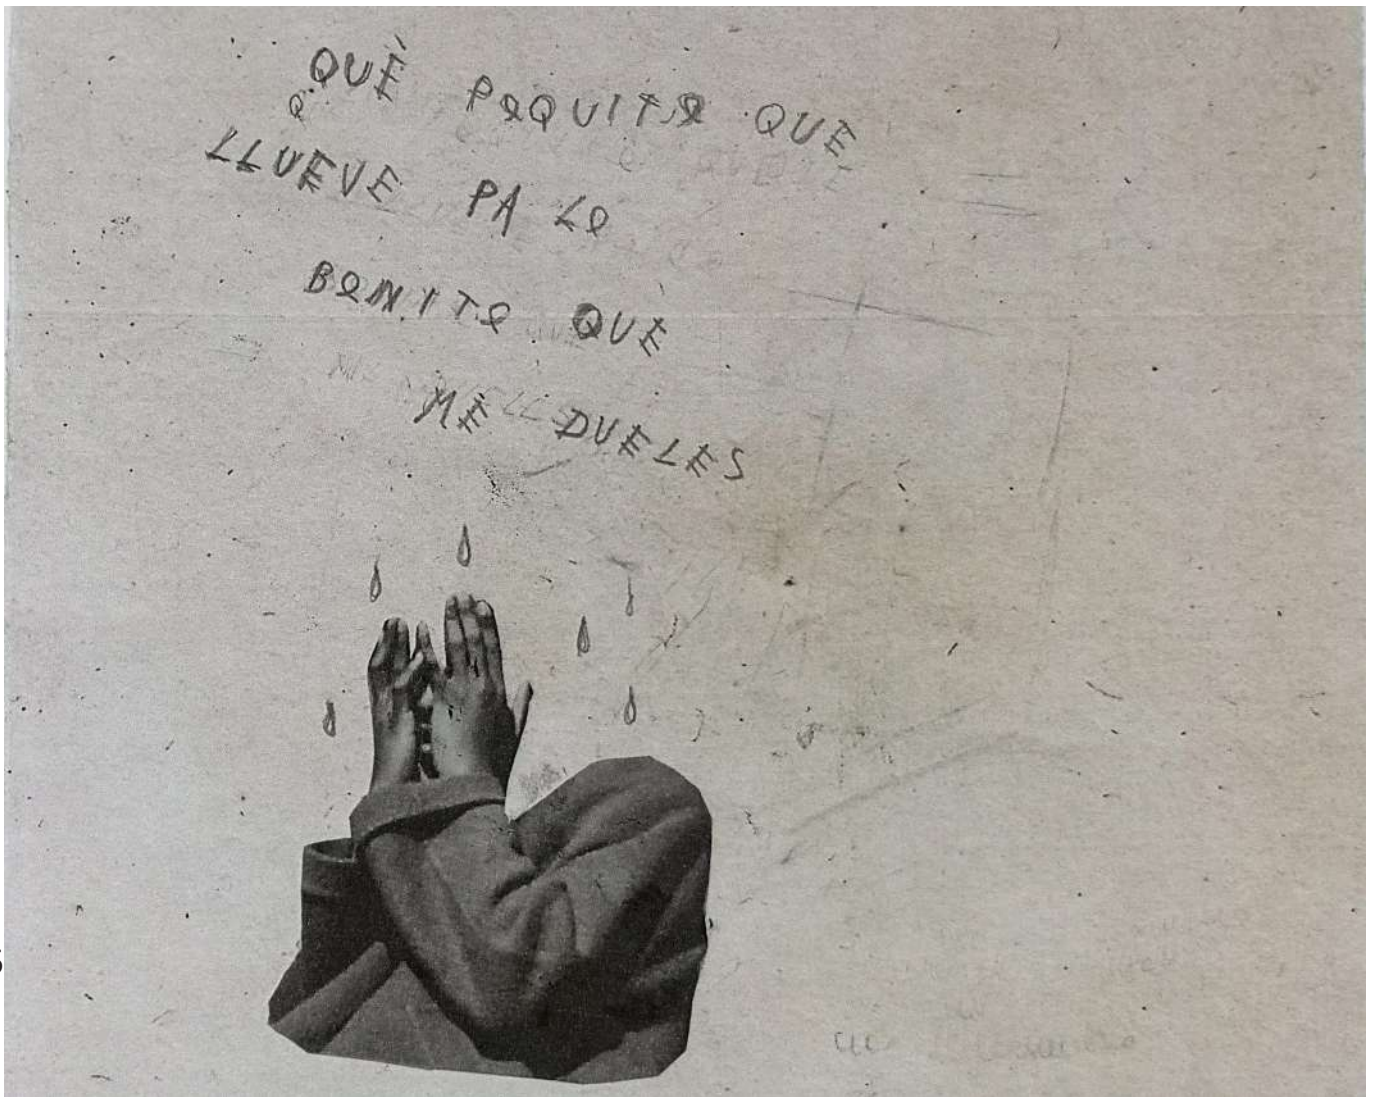 QUÉ POQUITO QUE
LLUEVE PA LO
BONITO QUE
ME DUELES